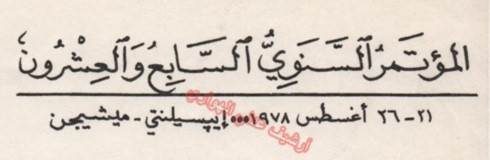 المؤتمر السَّنَوِيُّ السَّابِعُ وَالعِشْرُون
٢١-٢٦ أغسطس ١٩٧٨ .... إيپسيلنتي - ميشيجن
ارشيف